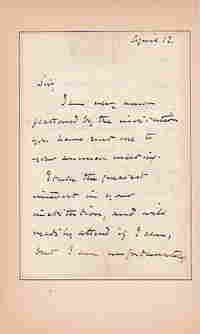 April 12.
Sir,
I am very much
gratified by the invitation
you have sent me to
your annual meeting.
I take the greatest
interest in your
institution, and will
readily attend if I can,
but I am unfortunately